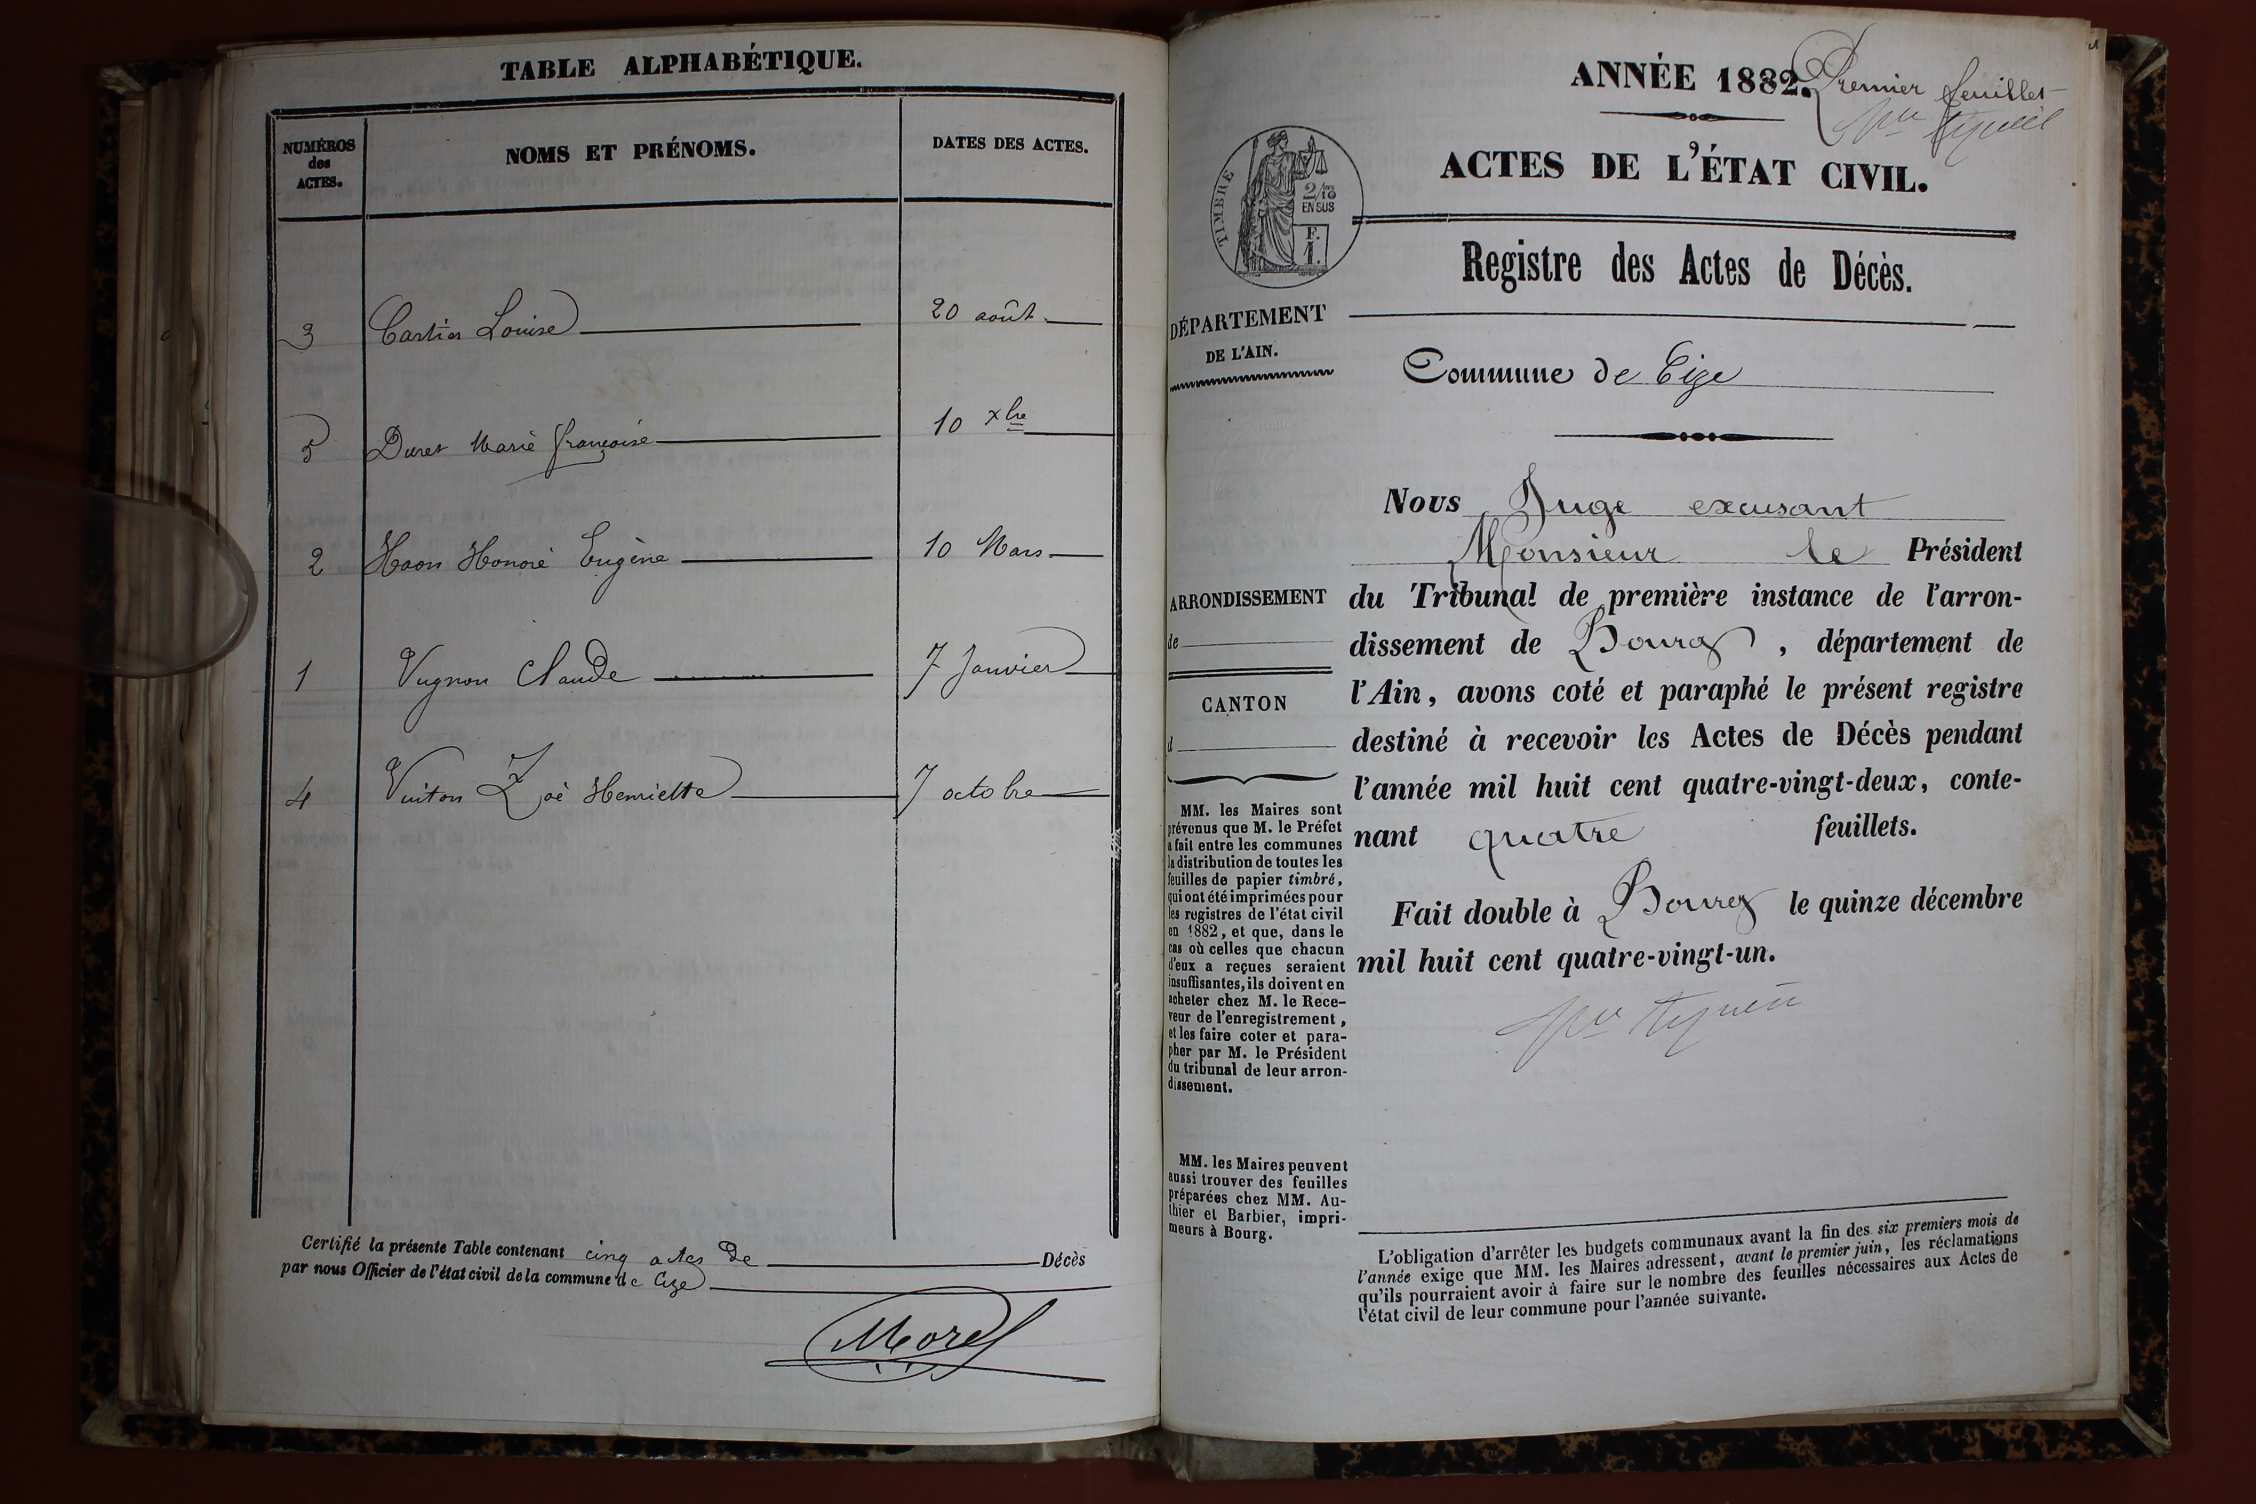 TABLE ALPHABÉTIQUE.
NUMÉROS
des
ACTES.
NOMS ET PRÉNOMS.
DATES DES ACTES.
3 Cartier Louise 20 août
5 Duret Marie françoise 10 xbre
2 Haon Honoré Eugène 10 Mars
1 Vugnon Claude 7 Janvier
4 Vuiton Zoé Henriette 7 octobre
Certifié la présente Table contenant cinq actes de Décès
par nous Officier de l'état civil de la commune de Cize
Morel
ANNÉE 1882.
Premier feuillet
ACTES DE L'ÉTAT CIVIL.
TIMBRE
2/10 EN SUS
F.
1.
Registre des Actes de Décès.
DÉPARTEMENT
DE L'AIN.
Commune de Cize
Nous Juge excusant
Monsieur le Président
du Tribunal de première instance de l'arron-
dissement de Bourg, département de
l'Ain, avons coté et paraphé le présent registre
destiné à recevoir les Actes de Décès pendant
l'année mil huit cent quatre-vingt-deux, conte-
nant quatre feuillets.
Fait double à Bourg le quinze décembre
mil huit cent quatre-vingt-un.
ARRONDISSEMENT
de
CANTON
d
MM. les Maires sont
prévenus que M. le Préfet
a fait entre les communes
la distribution de toutes les
feuilles de papier timbré,
qui ont été imprimées pour
les registres de l'état civil
en 1882, et que, dans le
cas où celles que chacun
d'eux a reçues seraient
insuffisantes, ils doivent en
acheter chez M. le Rece-
veur de l'enregistrement,
et les faire coter et para-
pher par M. le Président
du tribunal de leur arron-
dissement.
MM. les Maires peuvent
aussi trouver des feuilles
préparées chez MM. Au-
thier et Barbier, impri-
meurs à Bourg.
L'obligation d'arrêter les budgets communaux avant la fin des six premiers mois de
l'année exige que MM. les Maires adressent, avant le premier juin, les réclamations
qu'ils pourraient avoir à faire sur le nombre des feuilles nécessaires aux Actes de
l'état civil de leur commune pour l'année suivante.